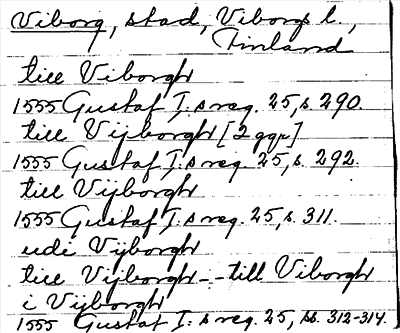 Viborg, stad, Viborgs l.,
Finland
till Viborgh
1555 Gustaf I:s reg. 25, s. 290.
till Vijborgh [2 ggr]
1555 Gustaf I:s reg. 25, s. 292.
till Vijborgh
1555 Gustaf I:s reg. 25, s. 311.
udi Vijborgh
till Vijborgh - - till Viborgh
i Vijborgh
1555 Gustaf I:s reg. 25, ss. 312-314.